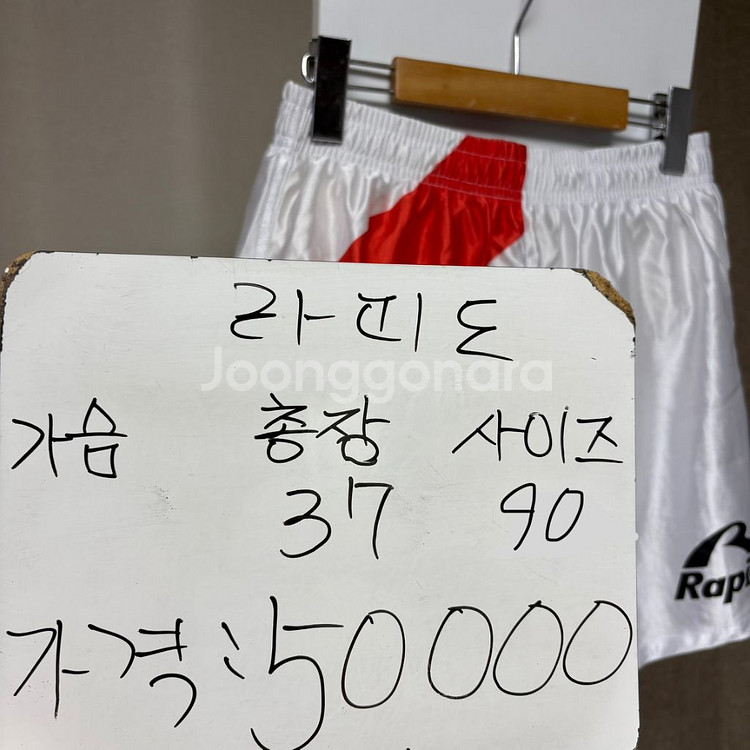 라피도
Joonggonara
가슴 총장 사이즈
37 90
가격 : 50000
Rapi